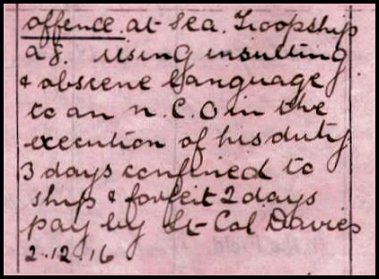 offence at Sea. Troopship
a.f. using insulting
& obscene language
to an N.C.O in the
execution of his duty
3 days confined to
ship & forfeit 2 days
pay by Lt-Col Davies
2.12.16